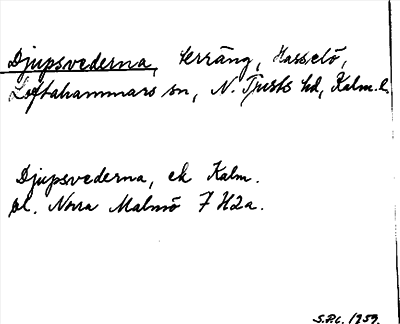 Djupsvederna, terräng, Hasselö,
Loftahammars sn, N. Tjusts hd, Kalm. l.
Djupsvederna, ek Kalm.
bl. Norra Malmö 7 H2a.
S.P.C. 1959.